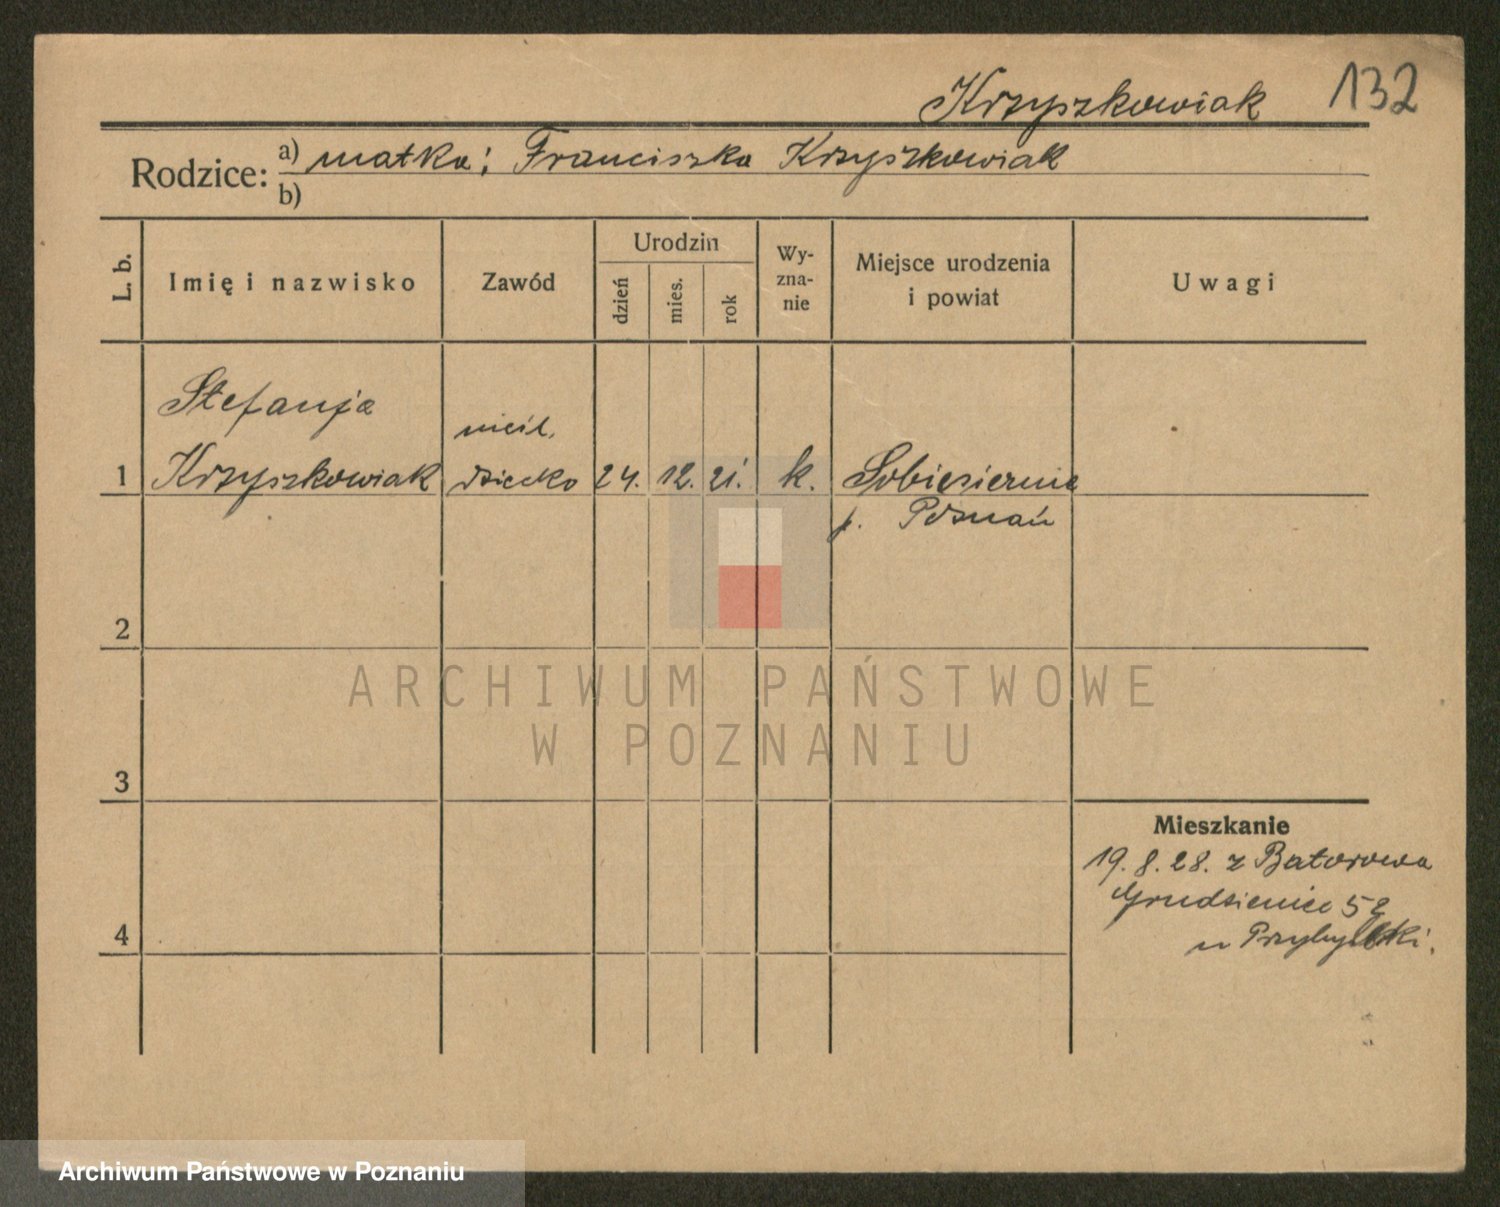 Krzyszkowiak 132
Rodzice: a) matka: Franciszka Krzyszkowiak
b)
L. b.
Imię i nazwisko
Zawód
Urodzin
dzień
mies.
rok
Wy-
zna-
nie
Miejsce urodzenia
i powiat
Uwagi
Stefanja
nieśl.
1 Krzyszkowiak dziecko 24. 12. 21. k. Sobiesiernie
p. Poznań
2
ARCHIWUM PAŃSTWOWE
W POZNANIU
3
Mieszkanie
19. 8. 28. z Batorowa
Grudzieniec 52
u Przybylski.
4
Archiwum Państwowe w Poznaniu